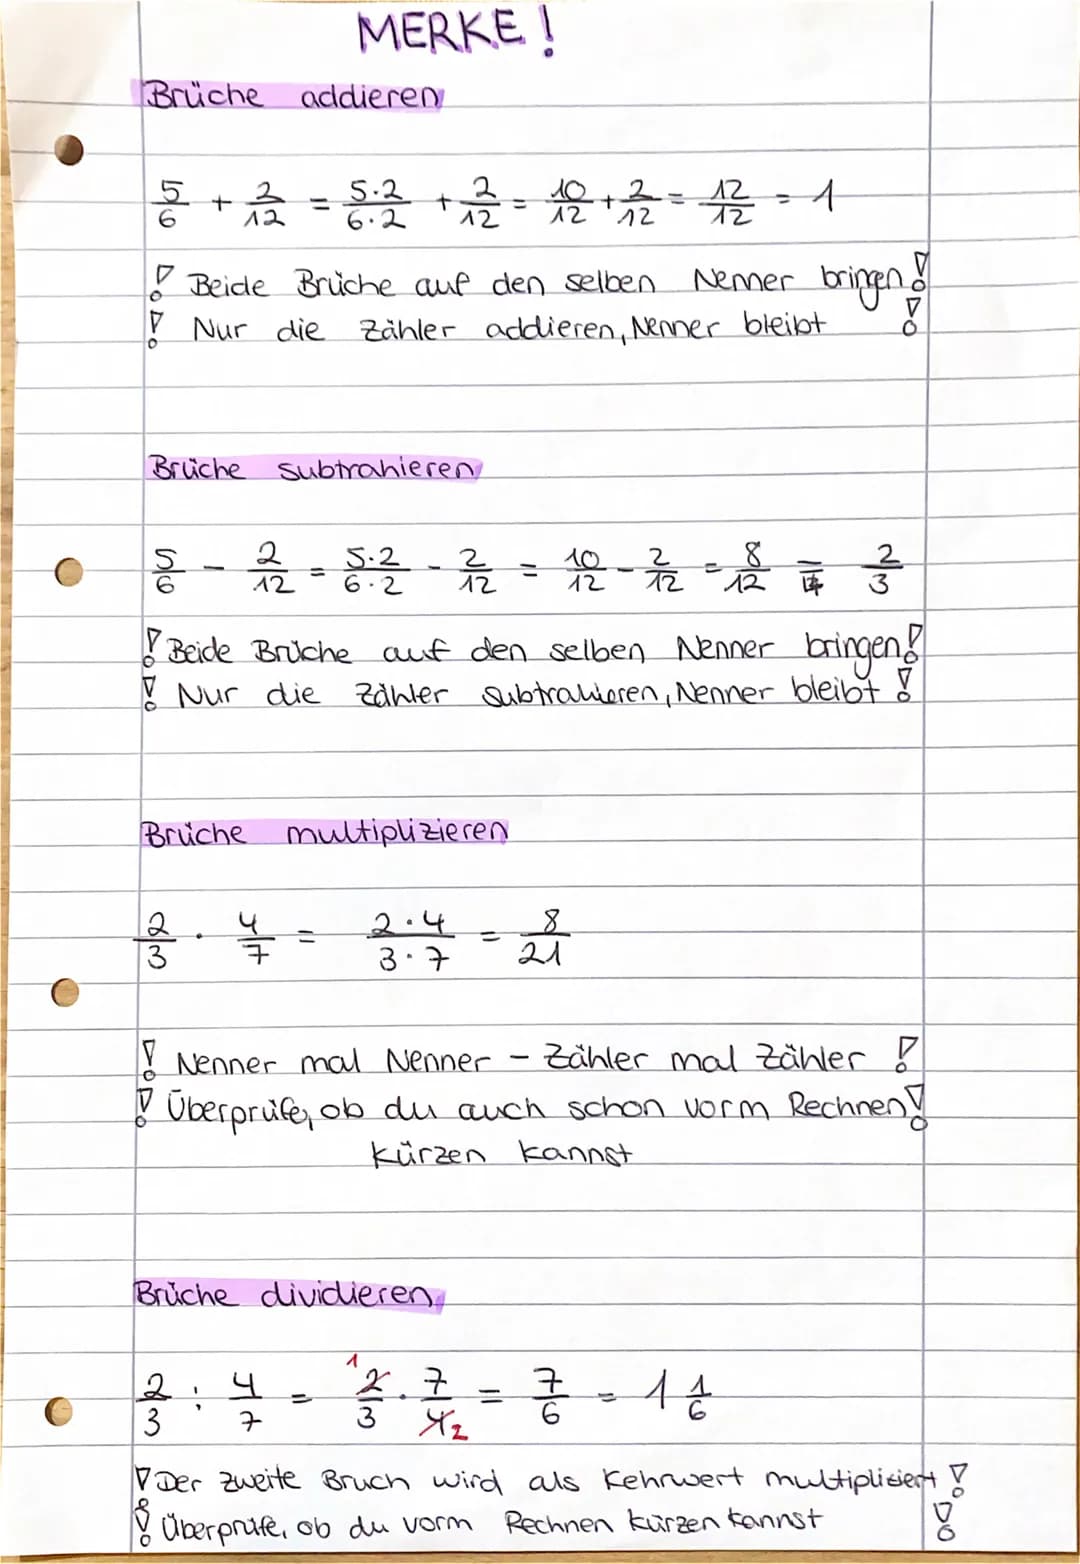 MERKE!
Brüche addieren
5/6 + 2/12 = 5·2/6·2 + 2/12 = 10/12 + 2/12 = 12/12 = 1
! Beide Brüche auf den selben Nenner bringen!
! Nur die Zähler addieren, Nenner bleibt !
Brüche subtrahieren
5/6 - 2/12 = 5·2/6·2 - 2/12 = 10/12 - 2/12 = 8/12 = 2/3
! Beide Brüche auf den selben Nenner bringen!
! Nur die Zähler subtrahieren, Nenner bleibt !
Brüche multiplizieren
2/3 · 4/7 = 2·4/3·7 = 8/21
! Nenner mal Nenner - Zähler mal Zähler !
! Überprüfe, ob du auch schon vorm Rechnen!
kürzen kannst
Brüche dividieren
2/3 : 4/7 = 1 2/3 · 7/4 2 = 7/6 = 1 1/6
! Der zweite Bruch wird als Kehrwert multipliziert !
! Überprüfe, ob du vorm Rechnen kürzen kannst !